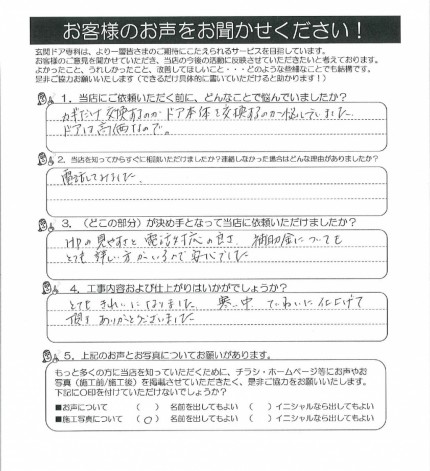 お客様のお声をお聞かせください！
玄関ドア専科は、より一層皆さまのご期待にこたえられるサービスを目指しています。
お客様のご意見を聞かせていただき、当店の今後の活動に反映させていただきたいと考えております。
よかったこと、うれしかったこと、改善してほしいこと・・・どのような些細なことでも結構です。
是非ご協力下さい（できるだけ具体的に書いていただけると助かります！）
1．当店にご依頼いただく前に、どんなことで悩んでいましたか？
カギだけ交換するのかドア本体を交換するのか悩んでいました
ドアは高価なので。
2．当店を知ってからすぐに相談いただけましたか？連絡しなかった場合はどんな理由がありましたか？
電話してみました。
3．（どこの部分）が決め手となって当店に依頼いただけましたか？
HPの見やすさと電話対応の良さ、補助金についても
とても詳しい方がいるので安心でした
4．工事内容および仕上がりはいかがでしょうか？
とてもきれいになりました 寒い中 ていねいに仕上げて
頂き ありがとうございました
5．上記のお声とお写真についてお願いがあります。
もっと多くの方に当店を知っていただくために、チラシ・ホームページ等にお声やお
写真（施工前/施工後）を掲載させていただきたく、是非ご協力をお願いいたします。
下記に〇印を付けていただけないでしょうか？
■お声について （ ） 名前を出してもよい （ ）イニシャルなら出してもよい
■施工写真について （〇） 名前を出してもよい （ ）イニシャルなら出してもよい